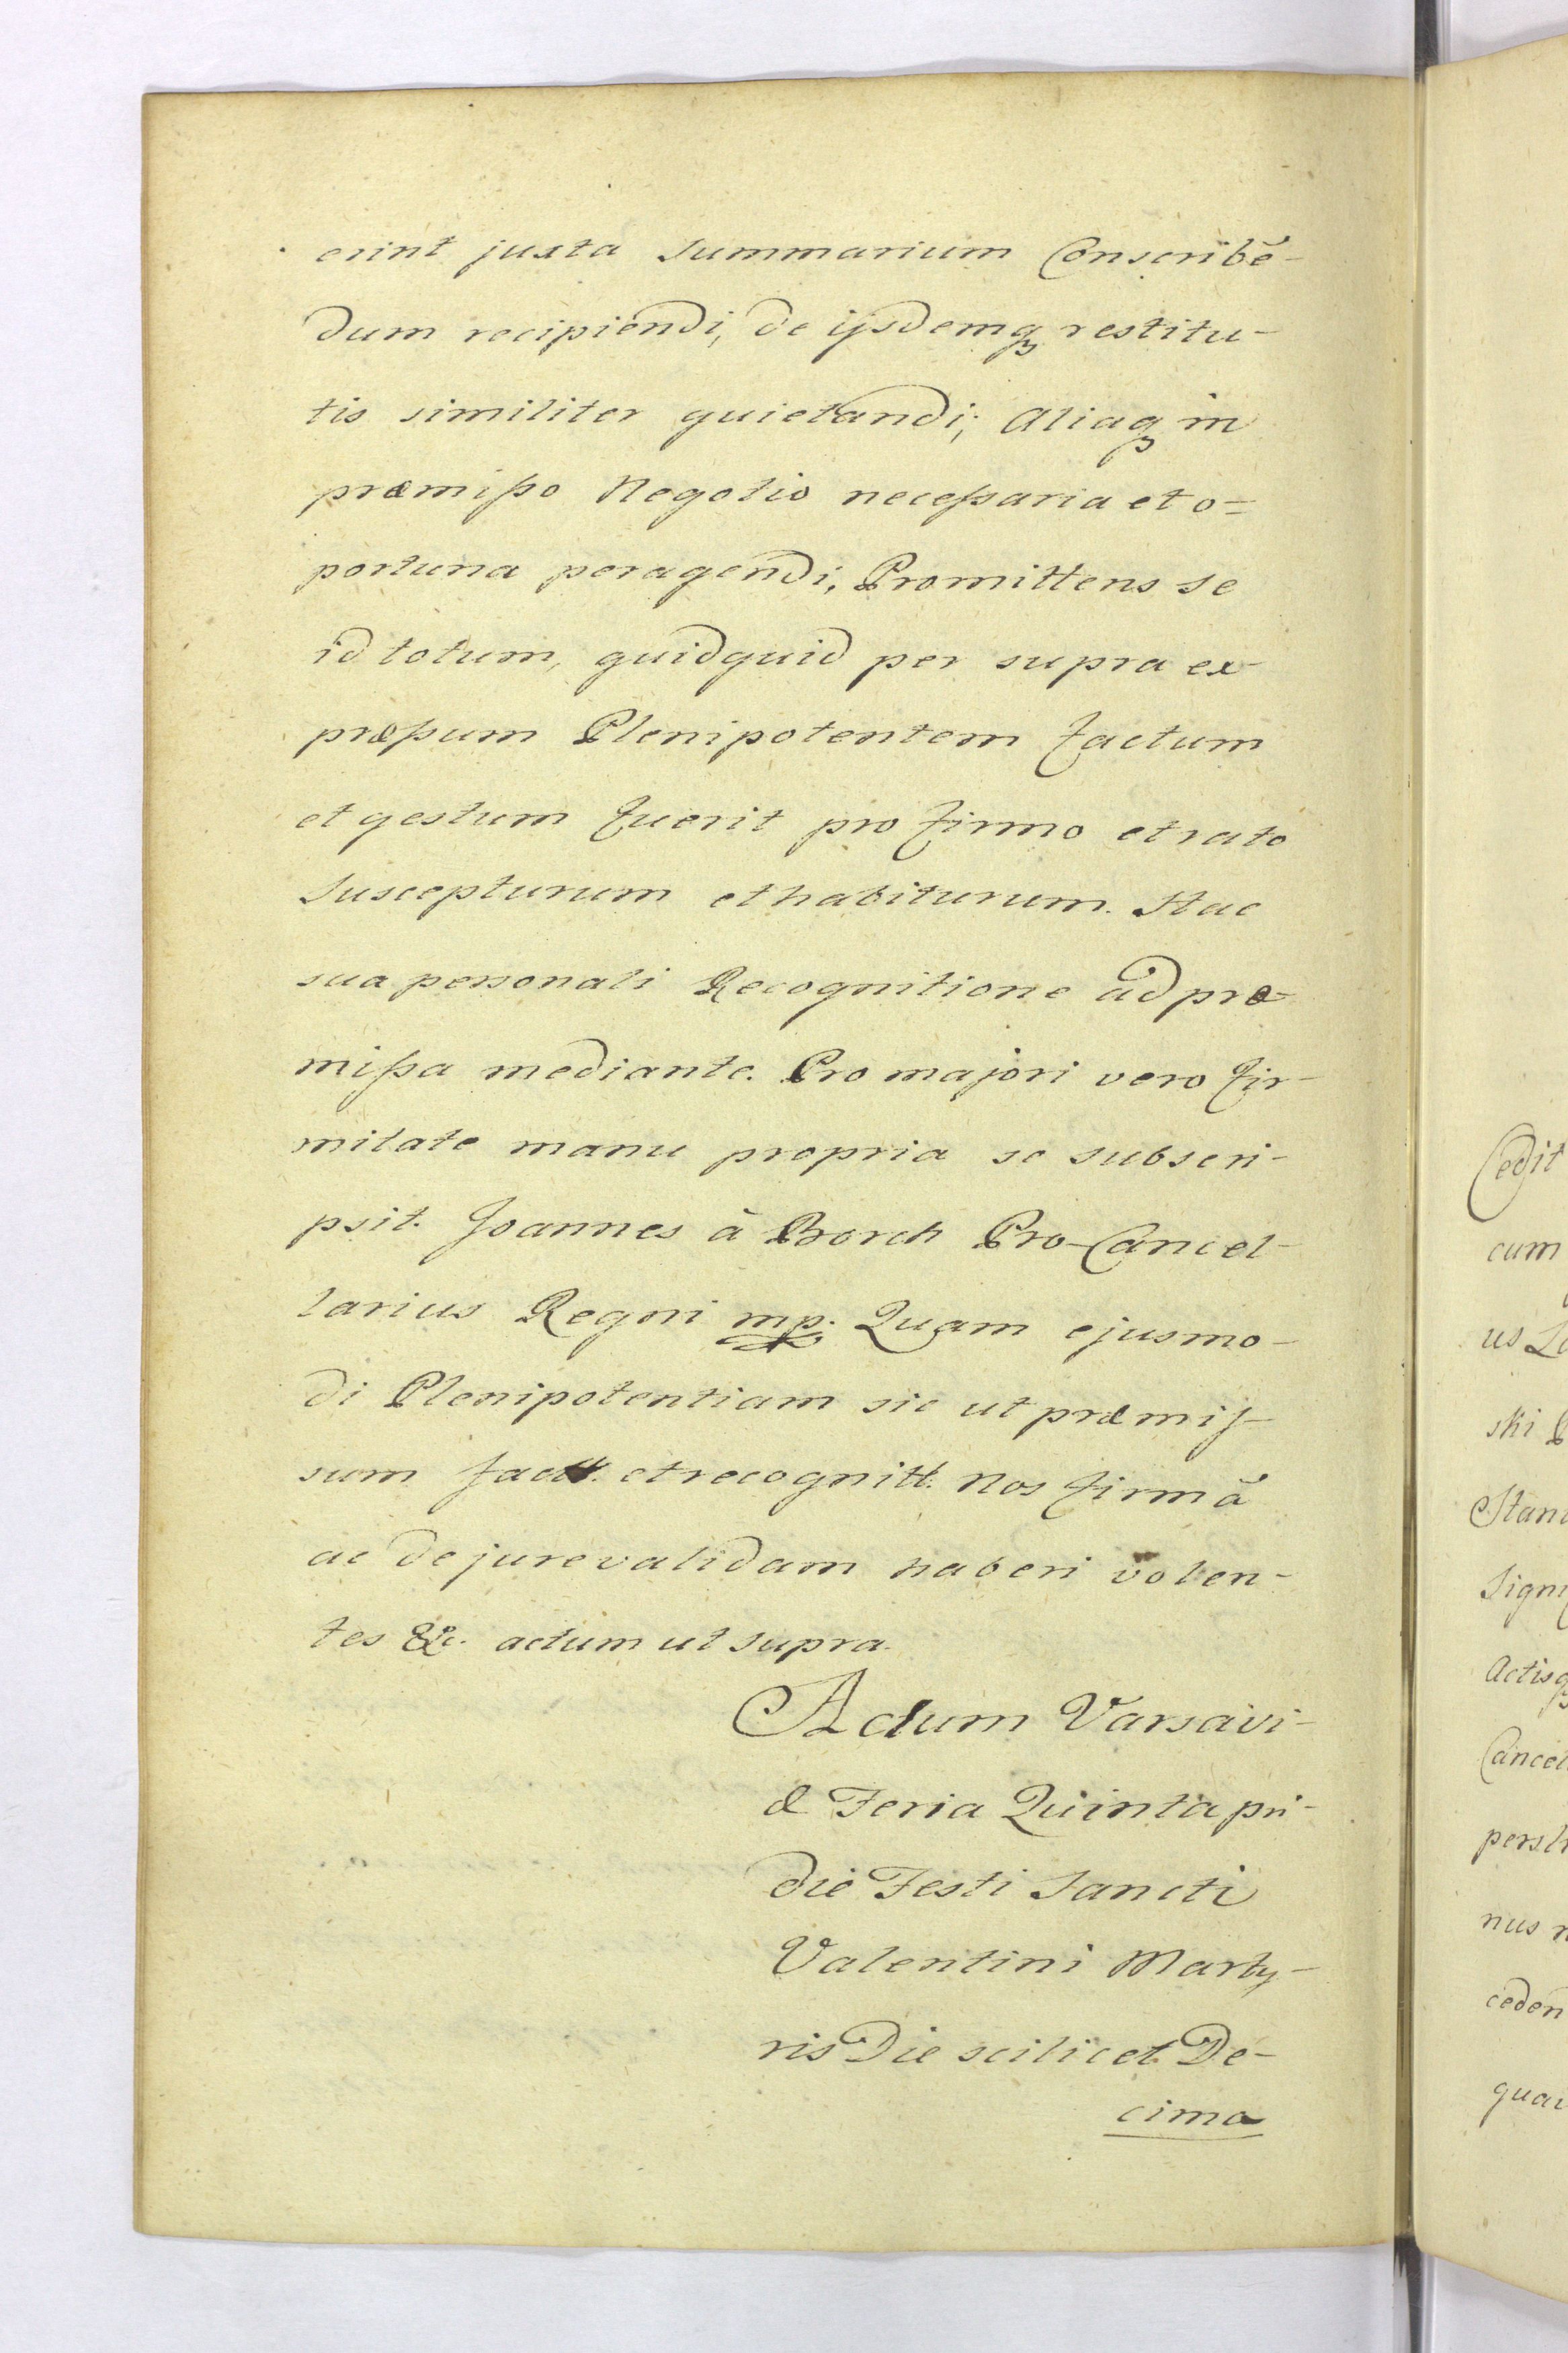 erint juxta Summarium Conscribē-
dum recipiendi, de ijsdemq₃ restitu-
tis similiter quietandi; Aliaq₃ in
præmißo Negotio neceßaria et o=
portuna peragendi, Promittens se
id totum, quidquid per supra ex-
preßum Plenipotentem factum
et gestum fuerit pro firmo et rato
suscepturum et habiturum. Hac
sua personali Recognitione ad præ-
mißa mediante. Pro majori vero fir-
mitate manu propria se subscri-
psit. Joannes à Borch Pro-Cancel-
larius Regni mp. Quam ejusmo-
di Plenipotentiam sic ut præmis-
sum factt. et recognitt. Nos firmā
ac de jure validam haberi volen-
tes &c. actum ut supra.
Actum Varsavi-
æ Feria Quinta pri-
die Festi Sancti
Valentini Marty-
ris Die scilicet De-
cima
Cedit
cum
us
ski
Stani
Signi
Actisq₃
Cancel
nus
ceden